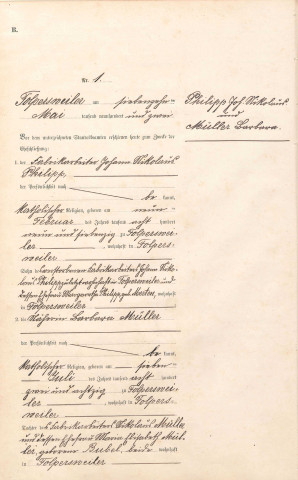 B.
Nr. 1.
Folpersweiler am siebenzehn-
Mai tausend neunhundert und zwei
Philipp Joh. Nikolaus
und
Müller Barbara.
Vor dem unterzeichneten Standesbeamten erschienen heute zum Zwecke der
Eheschließung:
1. der Fabrikarbeiter Johann Nikolaus
Philipp,
der Persönlichkeit nach
be kannt,
katholischer Religion, geboren am neun-
Februar des Jahres tausend acht hundert
neun und siebenzig zu Folperswei-
ler, wohnhaft in Folpers-
weiler
Sohn des verstorbenen Fabrikarbeiters Johann Niko-
laus Philipp zuletzt wohnhaft in Folpersweiler und
dessen Ehefrau Margaretha Philipp geb. wohnhaft
in Folpersweiler
2. die Näherin Barbara Müller
der Persönlichkeit nach
be kannt,
katholischer Religion, geboren am sieben-
Juli des Jahres tausend acht hundert
zwei und achtzig zu Folperswei-
ler, wohnhaft in Folpers-
weiler
Tochter des Fabrikarbeiters Nikolaus Müller
und dessen Ehefrau Maria Elisabeth Mül-
ler, geborene beide wohnhaft
in Folpersweiler